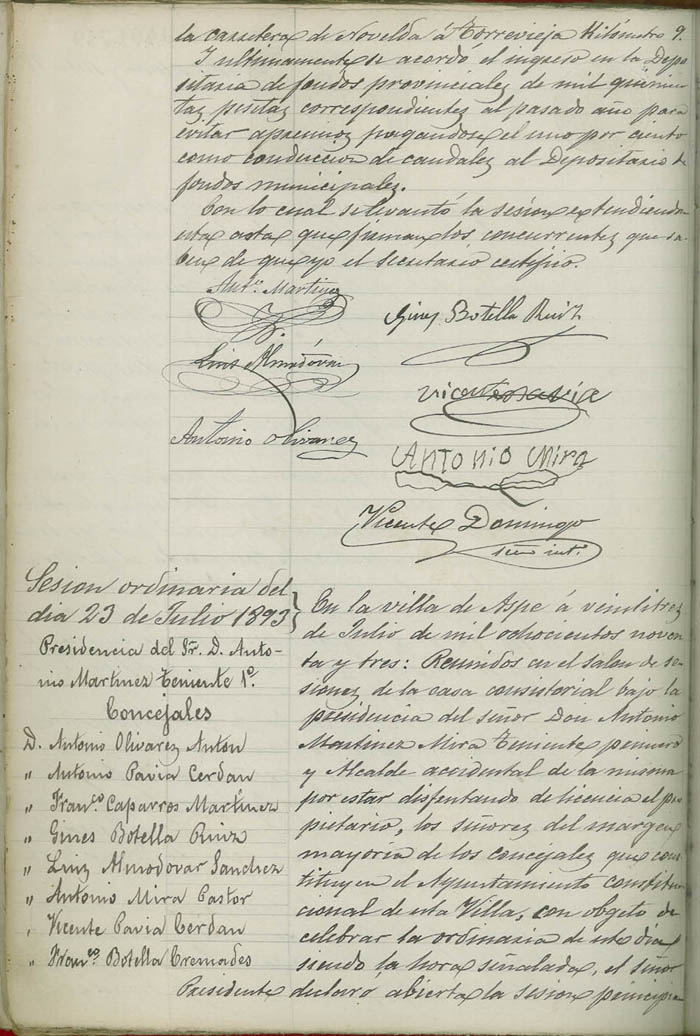 la carretera de Novelda á Torrevieja Kilómetro 9.
Y ultimamente se acordó el ingreso en la Depo
sitaria de fondos provinciales de mil quinien
tas pesetas correspondientes al pasado año para
evitar apremios pagandose el uno por ciento
como conduccion de caudales al Depositario de
fondos municipales.
Con lo cual se levantó la sesion extendiendose
esta acta que firman los concurrentes que sa-
ben de que yo el secretario certifico.
Antº. Martinez
Gines Botella Ruiz
Luis Almodóvar
Vicente Pavia
Antonio Olivarez
Antonio Mira
Vicente Domingo
srio intº.
Sesion ordinaria del
dia 23 de Julio 1893
Presidencia del Sr. D. Anto-
nio Martinez Teniente 1º.
Concejales
D. Antonio Olivarez Anton
" Antonio Pavia Cerdan
" Franco. Caparros Martinez
" Gines Botella Ruiz
" Luiz Almodovar Sanchez
" Antonio Mira Pastor
" Vicente Pavia Cerdan
" Franco. Botella Cremades
En la villa de Aspe á veintitrez
de Julio de mil ochocientos noven
ta y tres: Reunidos en el Salon de se-
siones de la casa consistorial bajo la
presidencia del señor Don Antonio
Martinez Mira Teniente primero
y Alcalde accidental de la misma
por estar disfrutando de licencia el pro
pietario, los señores del margen
mayoria de los concejales que cons
tituyen el Ayuntamiento constitu
cional de esta Villa, con obgeto de
celebrar la ordinaria de este dia y
siendo la hora señalada, el señor
Presidente declaro abierta la sesion principian